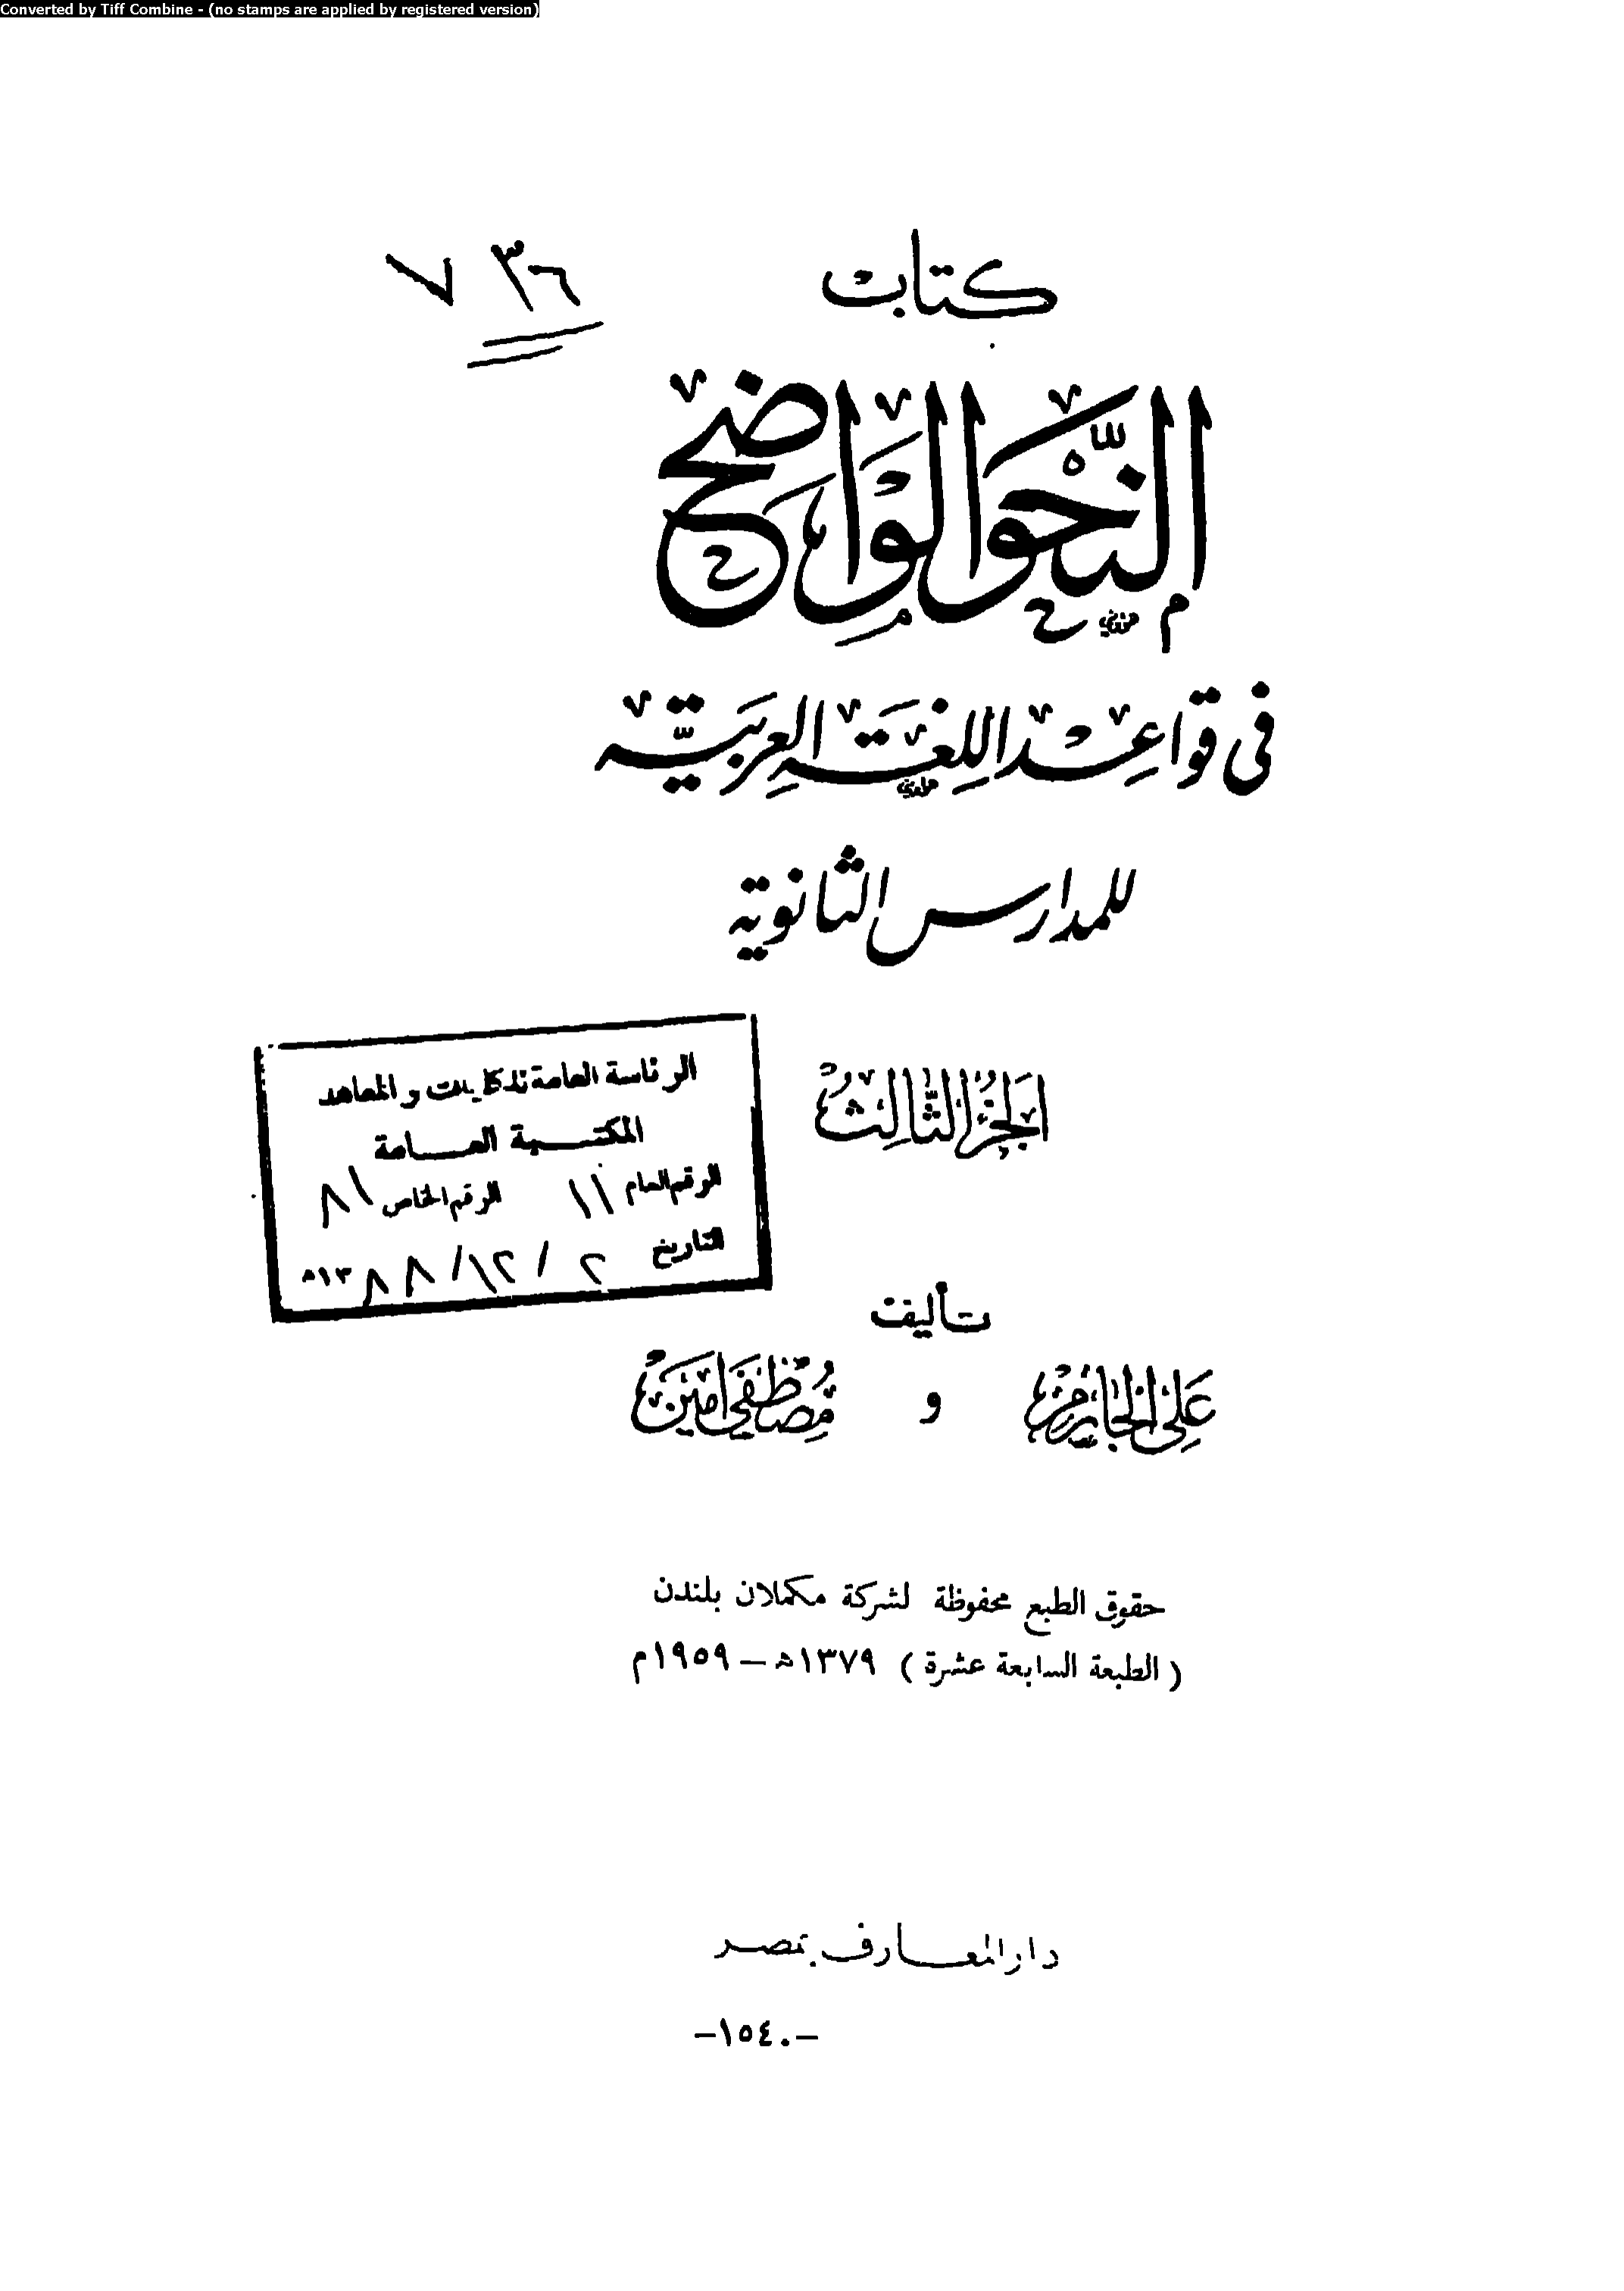 Converted by Tiff Combine - (no stamps are applied by registered version)
٧٣٦
كتاب
النَّحْو الْوَاضِح
فى قواعِد اللغة العربيّة
للمدارس الثانوية
الجزء الثالث
الرئاسة العامة للكليات والمعاهد
المكتبة العامة
الرقم العام ١١ الرقم الخاص ٨١
التاريخ ٢ / ١٢ / ١٣٨٨هـ
تأليف
على الجارم و مصطفى أمين
حقوق الطبع محفوظة لشركة مكملان بلندن
( الطبعة السابعة عشرة ) ١٣٧٩هـ – ١٩٥٩م
دار المعارف بمصر
–١٥٤٠–